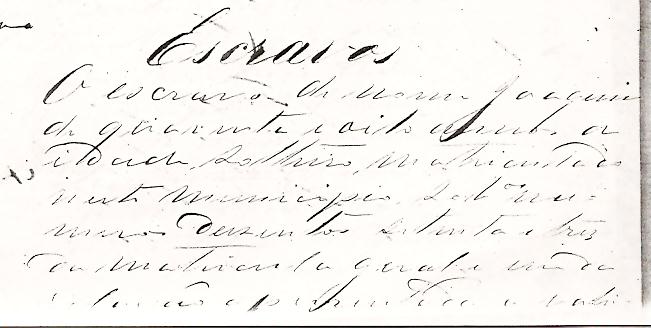 Escravos
O escravo de nome Joaquim
de quarenta e oito annos de
idade, solteiro, matriculado
neste Municipio, sob o nu-
mero Dusentos setenta e trez
da matricula geral e um da
relação apresentada